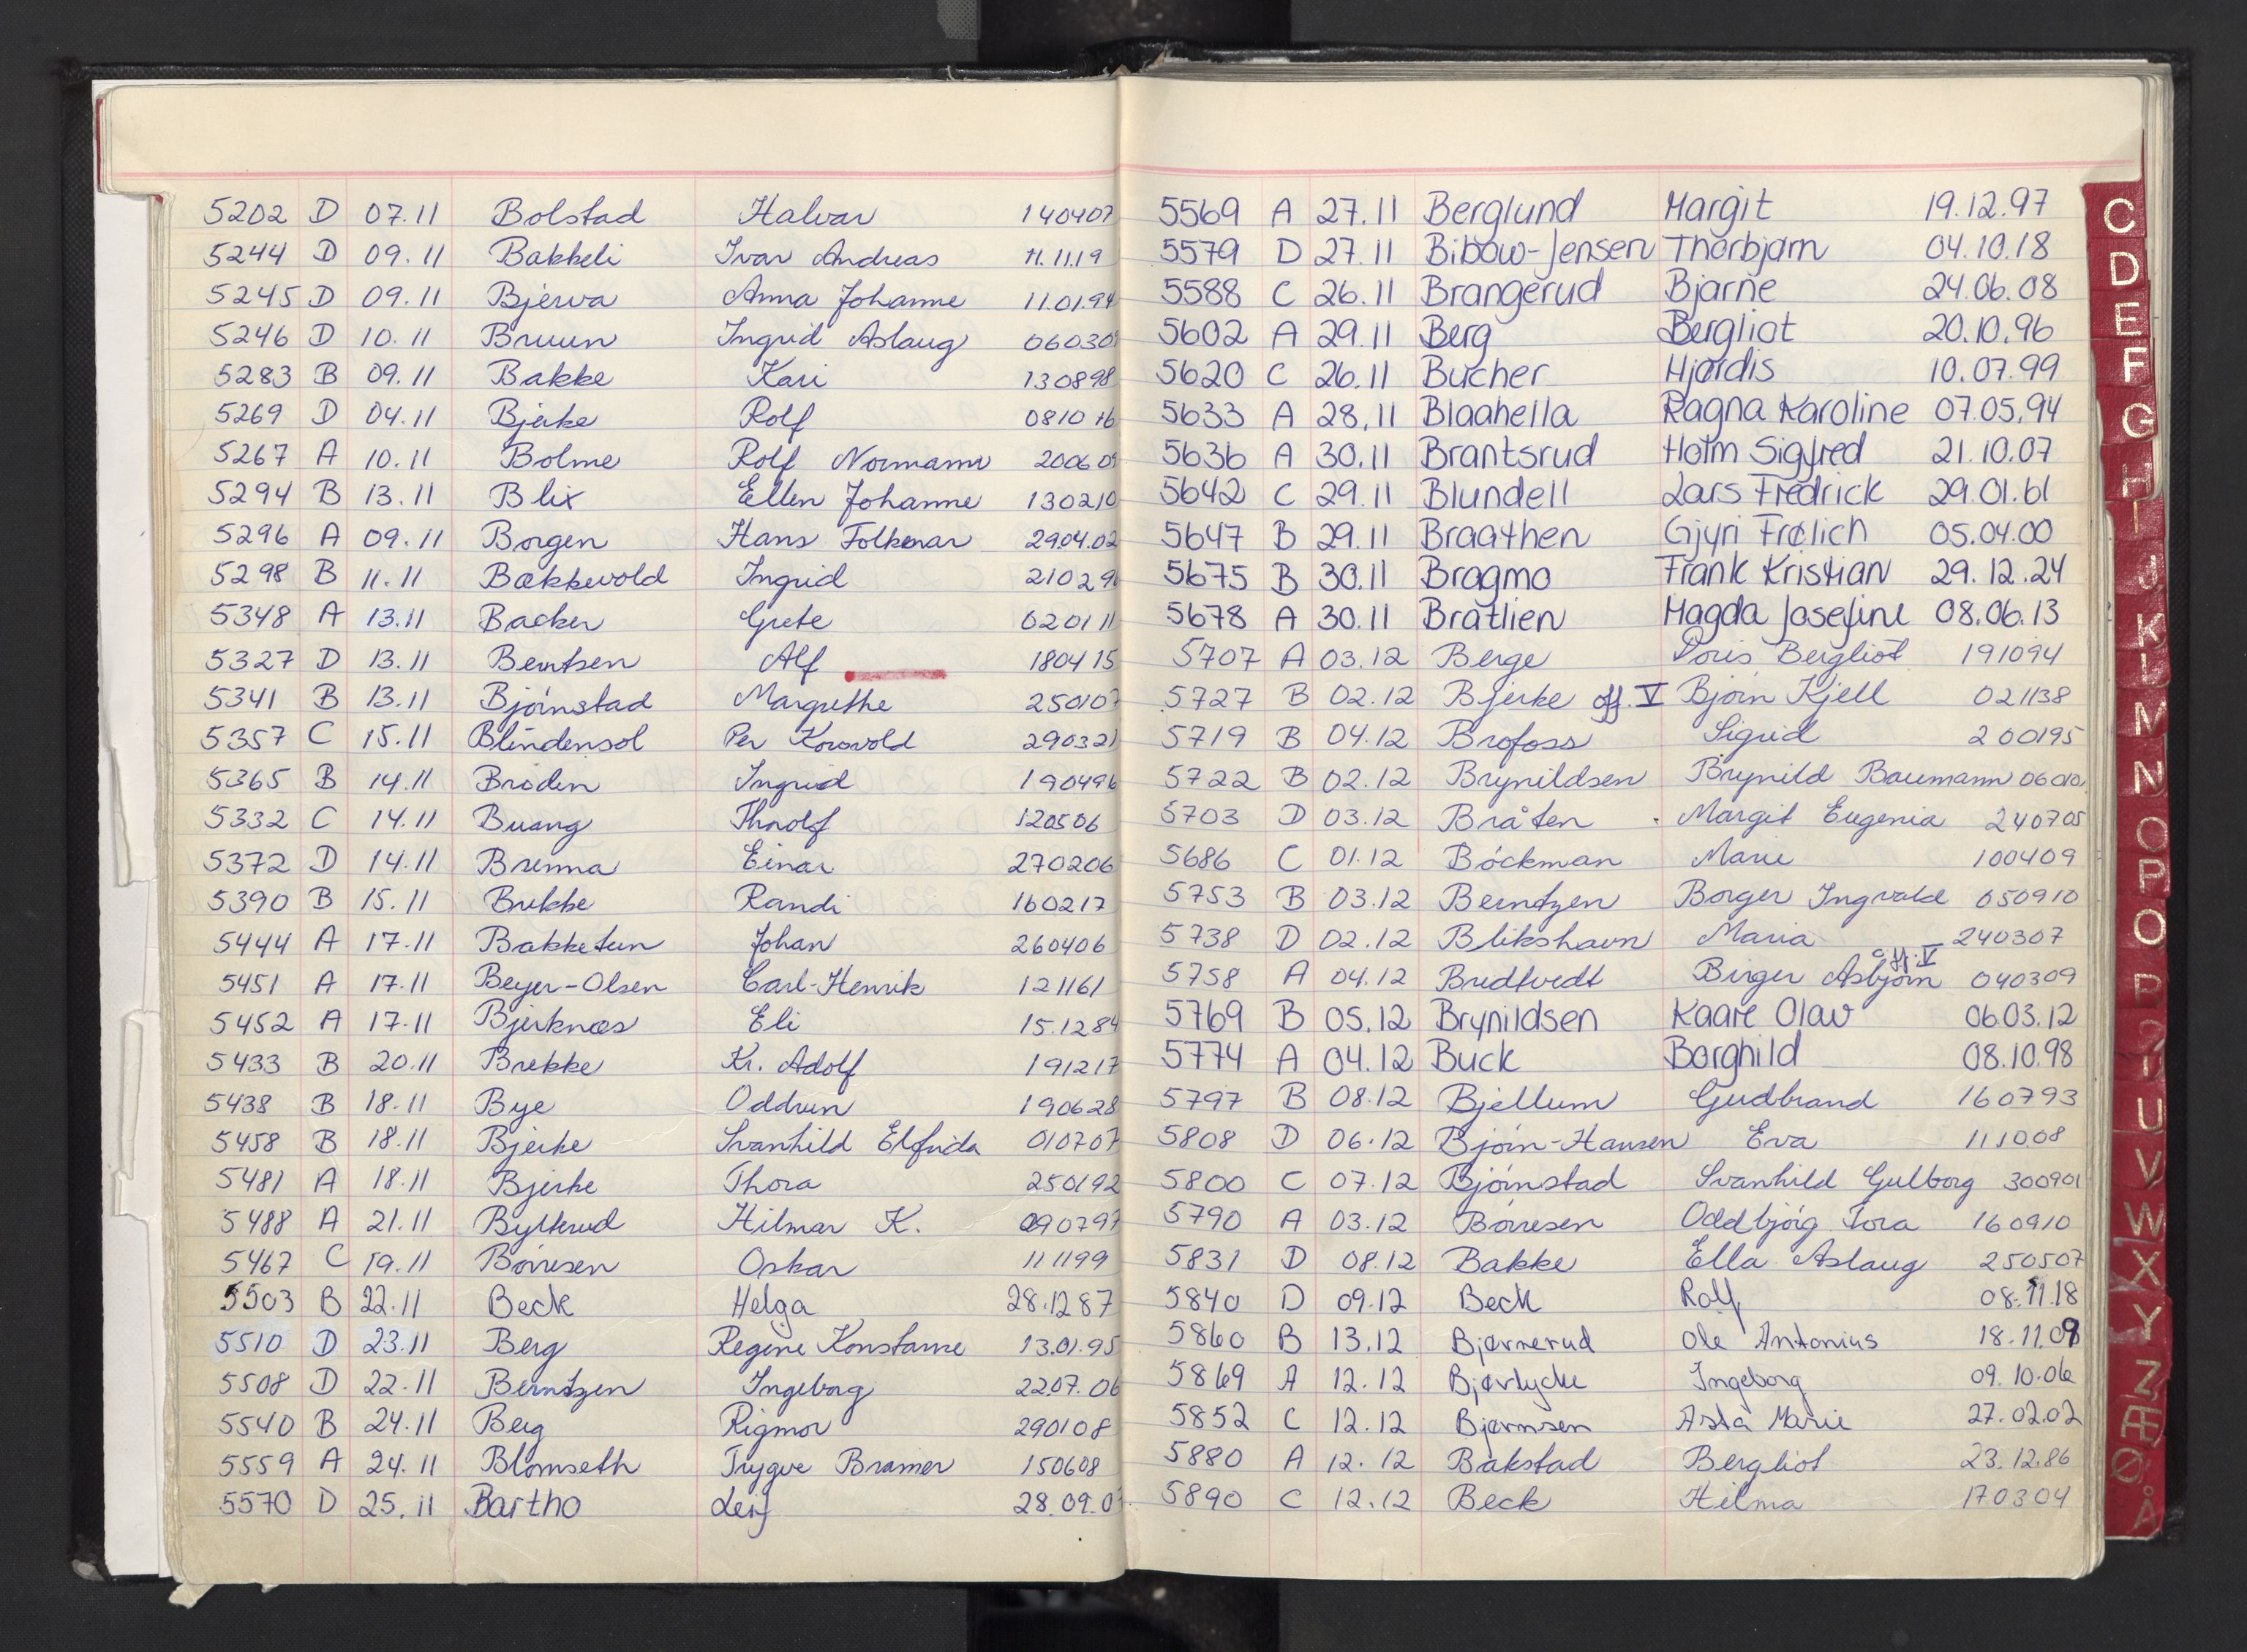 5202 D 07.11 Bolstad Halvar 140407
5244 D 09.11 Bakkeli Ivar Andreas 11.11.19
5245 D 09.11 Bjerva Anna Johanne 11.01.94
5246 D 10.11 Bruun Ingrid Aslaug
5283 B 09.11 Bakke Kari 130898
5269 D 04.11 Bjerke Rolf 0810 16
5267 A 10.11 Bolme Rolf Normann 200609
5294 B 13.11 Blix Ellen Johanne 130210
5296 A 09.11 Borgen Hans Folkmar 2904.02
5298 B 11.11 Bækkevold Ingrid
5348 A 13.11 Backer Grete 020111
5327 D 13.11 Berntsen Alf 180415
5341 B 13.11 Bjørnstad Margrethe 250107
5357 C 15.11 Blindensol Per Korsvold 290321
5365 B 14.11 Brodin Ingrid 190496
5332 C 14.11 Buang Thorolf 120506
5372 D 14.11 Brenna Einar 270206
5390 B 15.11 Brekke Randi 160217
5444 A 17.11 Bakketun Johan 260406
5451 A 17.11 Beyer-Olsen Carl-Henrik 121161
5452 A 17.11 Bjerknæs Eli 15.1284
5433 B 20.11 Brekke Kr. Adolf 191217
5438 B 18.11 Bye Oddrun 190628
5458 B 18.11 Bjerke Svanhild Elfrida 010707
5481 A 18.11 Bjerke Thora 250192
5488 A 21.11 Bylterud Hilmar K. 090797
5467 C 19.11 Børresen Oskar 111199
5503 B 22.11 Beck Helga 28.1287
5510 D 23.11 Berg Regine Konstanse 13.01.95
5508 D 22.11 Berntzen Ingeborg 2207.06
5540 B 24.11 Berg Rigmor 290108
5559 A 24.11 Blomseth Trygve Bramer 150608
5570 D 25.11 Bartho Leif 28.09.07
5569 A 27.11 Berglund Margit 19.12.97
5579 D 27.11 Bibow-Jensen Thorbjørn 04.10.18
5588 C 26.11 Brangerud Bjarne 24.06.08
5602 A 29.11 Berg Bergliot 20.10.96
5620 C 26.11 Bucher Hjørdis 10.07.99
5633 A 28.11 Blaahella Ragna Karoline 07.05.94
5636 A 30.11 Brantsrud Holm Sigfred 21.10.07
5642 C 29.11 Blundell Lars Fredrick 29.01.61
5647 B 29.11 Braathen Gjyri Frølich 05.04.00
5675 B 30.11 Bragmo Frank Kristian 29.12.24
5678 A 30.11 Bråtlien Magda Josefine 08.06.13
5707 A 03.12 Berge Doris Bergliot 191094
5727 B 02.12 Bjerke off. V Bjørn Kjell 021138
5719 B 04.12 Brofoss Sigrid 200195
5722 B 02.12 Brynildsen Brynild Baumann 06010
5703 D 03.12 Bråten Margit Eugenia 240705
5686 C 01.12 Böckman Marie 100409
5753 B 03.12 Berntzen Borger Ingvald 050910
5738 D 02.12 Blikshavn Maria 240307
5758 A 04.12 Bredtvedt Birger Asbjørn off. V 040309
5769 B 05.12 Brynildsen Kaare Olav 06.03.12
5774 A 04.12 Buck Borghild 08.10.98
5797 B 08.12 Bjellum Gudbrand 160793
5808 D 06.12 Bjørn-Hansen Eva 111008
5800 C 07.12 Bjørnstad Svanhild Gulborg 300901
5790 A 03.12 Børresen Oddbjørg Tora 160910
5831 D 08.12 Bakke Ella Aslaug 250507
5840 D 09.12 Beck Rolf 08.11.18
5860 B 13.12 Bjørnerud Ole Antonius 18.11.09
5869 A 12.12 Bjørlycke Ingeborg 09.10.06
5852 C 12.12 Bjørnsen Asta Marie 27.02.02
5880 A 12.12 Bakstad Bergliot 23.12.86
5890 C 12.12 Beck Hilma 170304
C
D
E
F
G
H
I
J
K
L
M
N
O
P
Q
R
U
V
W
X
Y
Z
Æ
Ø
Å